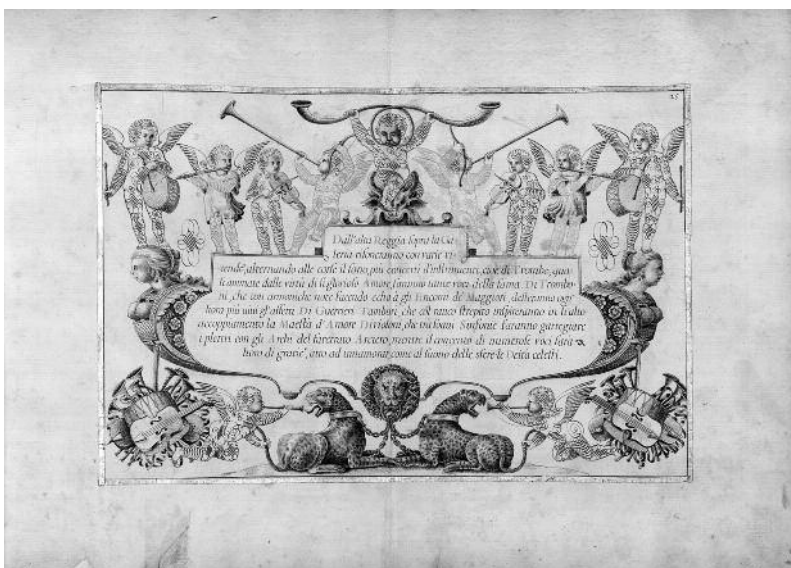 25
Dall'alta Reggia sopra la Ga
leria risoneranno con varie vi
cende, alternando alle corse il sono, più concerti d'instrumenti, cioè di Trombe, qua
li animate dalla virtù di sì glorioso Amore, saranno tante voci della fama. Di Trombo
ni, che con armoniche note facendo echo à gli Encomi de Maggiori, desteranno ogn'
hora più vini gl'affetti. Di Guerrieri Tamburi, che col rauco strepito inspireranno in sì alto
accoppiamento la Maestà d'Amore. Di violoni, che più soavi Sinfonie faranno gareggiare
i plettri con gli Archi del faretrato Arciero, mentre il concento di numerose voci sarà
choro di gratie, atto ad innamorar, come al suono delle sfere le Deità celesti.